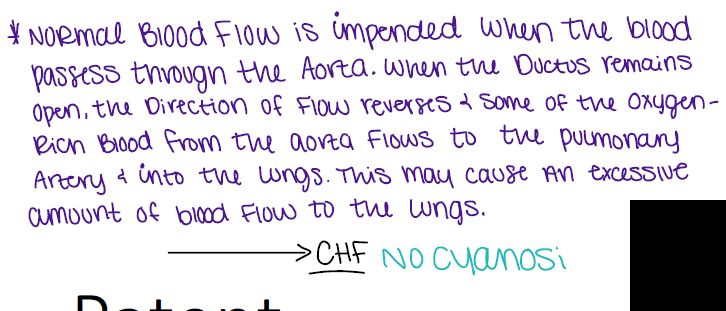 * Normal Blood Flow is impended when the blood
passess through the Aorta. When the Ductus remains
open, the Direction of Flow reverses & some of the oxygen-
Rich Blood from the aorta Flows to the pulmonary
Artery & into the lungs. This may cause an excessive
amount of blood Flow to the lungs.
→ CHF No cyanosi
Patent